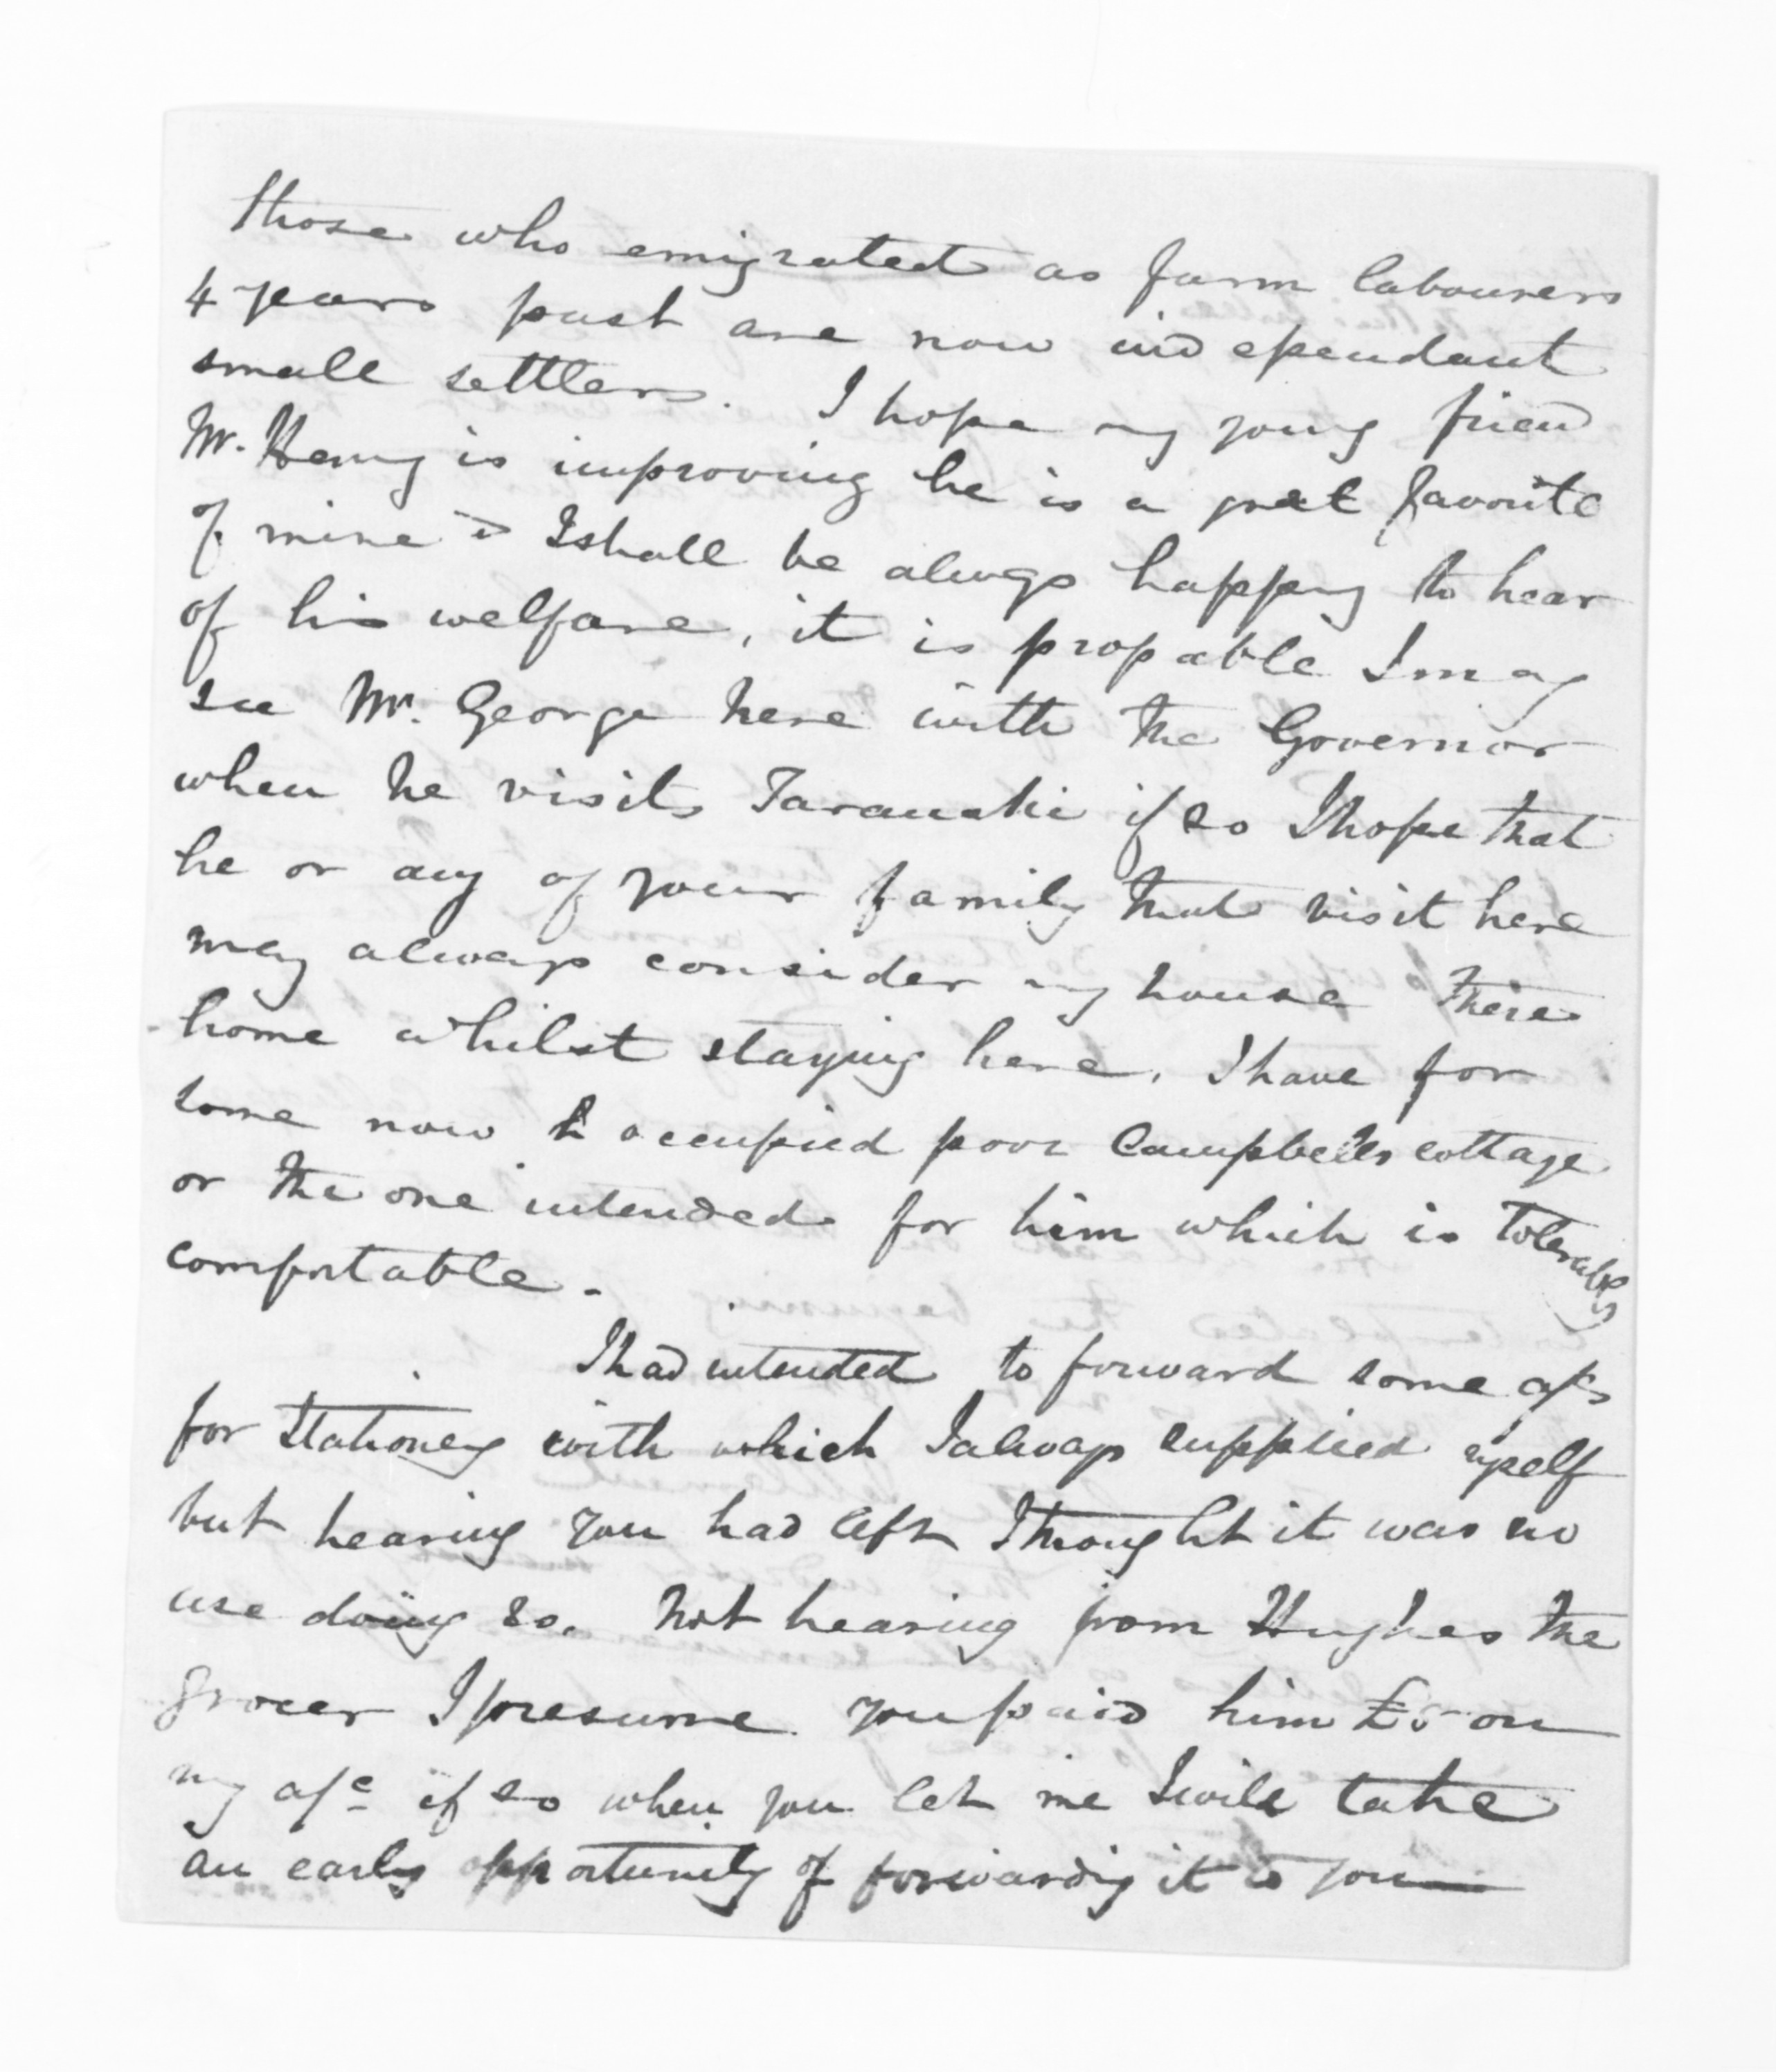 those who emigrated as farm labourers
4 years past are now independant
small settlers. I hope my young friend
Mr. Henry is improving he is a great favorite
of mine & I shall be always happy to hear
of his welfare, it is propable I may
see Mr. George here with the Governor
when he visits Taranaki if so I hope that
he or any of your family that visit here
may always consider my house there
home whilst staying here. I have for
some now occupied poor Campbells cottage
or the one intended for him which is tolerably
comfortable.
I had intended to forward some a/cs
for stationery with which I always supplied myself
but hearing you had left I thought it was no
use doing so. Not hearing from Hughes the
grocer I presume you paid him £5 on
my a/c if so when you let me I will take
an early opportunity of forwarding it to you